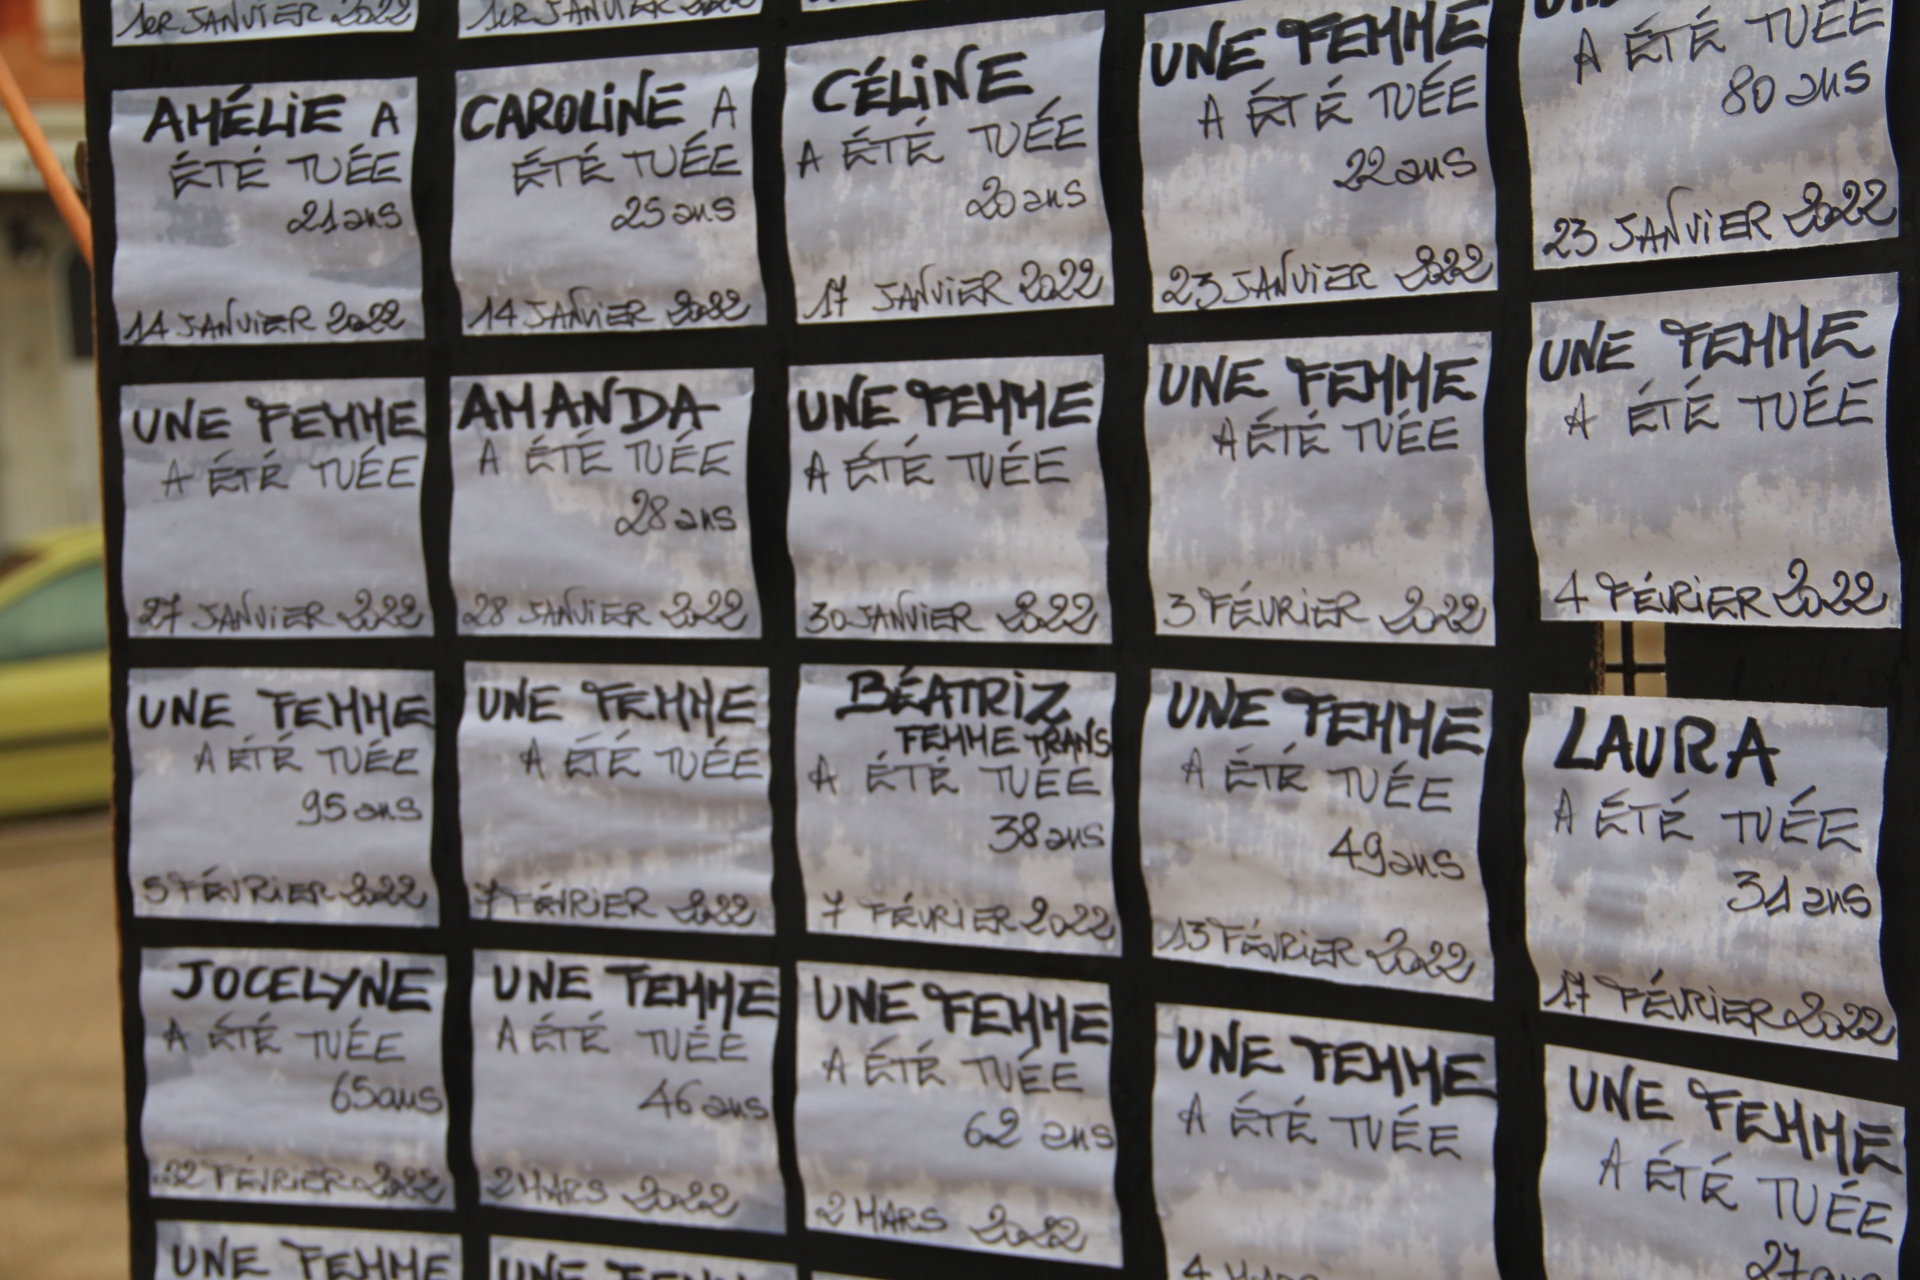 1ER JANVIER 2022
1ER JANVIER 2022
AMÉLIE A
ÉTÉ TUÉE
21 ans
14 JANVIER 2022
CAROLINE A
ÉTÉ TUÉE
25 ans
14 JANVIER 2022
CÉLINE
A ÉTÉ TUÉE
20 ans
17 JANVIER 2022
UNE FEMME
A ÉTÉ TUÉE
22 ans
23 JANVIER 2022
A ÉTÉ TUÉE
80 ans
23 JANVIER 2022
UNE FEMME
A ÉTÉ TUÉE
27 JANVIER 2022
AMANDA
A ÉTÉ TUÉE
28 ans
28 JANVIER 2022
UNE FEMME
A ÉTÉ TUÉE
30 JANVIER 2022
UNE FEMME
A ÉTÉ TUÉE
3 FÉVRIER 2022
UNE FEMME
A ÉTÉ TUÉE
4 FÉVRIER 2022
UNE FEMME
A ÉTÉ TUÉE
95 ans
5 FÉVRIER 2022
UNE FEMME
A ÉTÉ TUÉE
7 FÉVRIER 2022
BÉATRIZ
FEMME TRANS
A ÉTÉ TUÉE
38 ans
7 FÉVRIER 2022
UNE FEMME
A ÉTÉ TUÉE
49 ans
13 FÉVRIER 2022
LAURA
A ÉTÉ TUÉE
31 ans
17 FÉVRIER 2022
JOCELYNE
A ÉTÉ TUÉE
65 ans
22 FÉVRIER 2022
UNE FEMME
A ÉTÉ TUÉE
46 ans
2 MARS 2022
UNE FEMME
A ÉTÉ TUÉE
62 ans
2 MARS 2022
UNE FEMME
A ÉTÉ TUÉE
4 MARS
UNE FEMME
A ÉTÉ TUÉE
27 ans
UNE FEMME
UNE FEMME